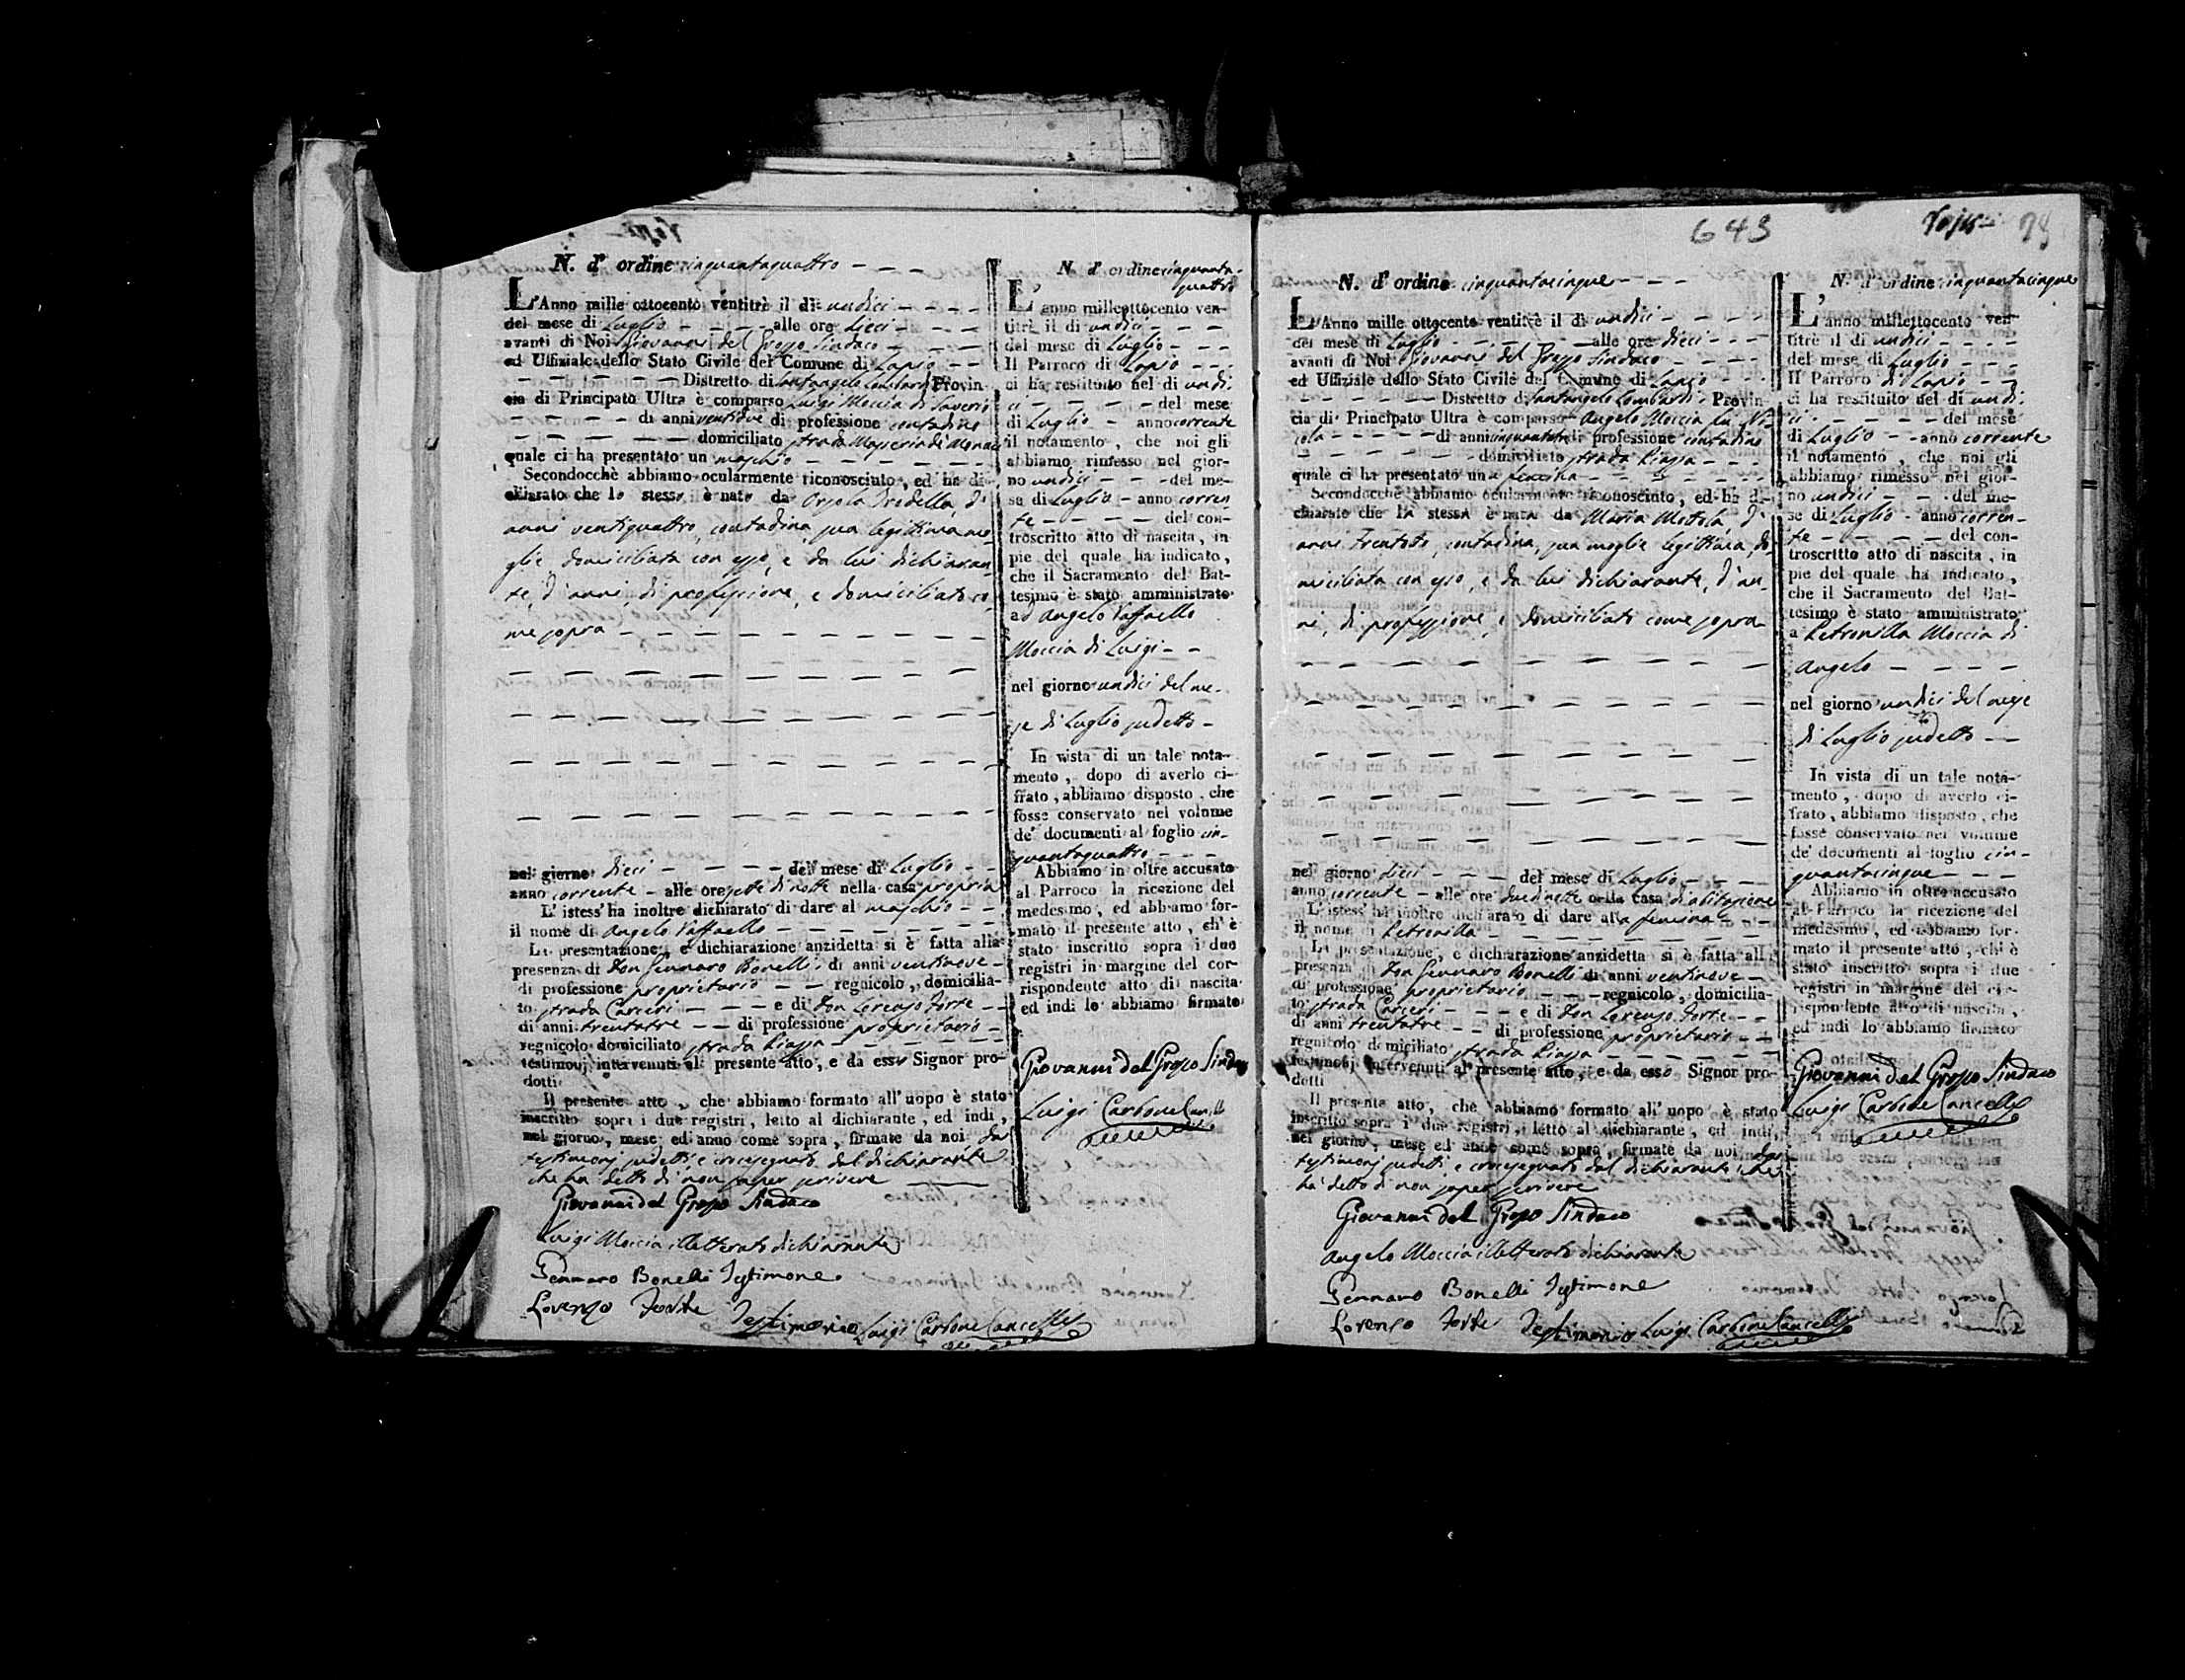 N. d'ordine cinquantaquattro
L'Anno mille ottocento ventitrè il di undici
del mese di Luglio alle ore dieci
avanti di Noi Giovanni del Grosso Sindaco
ed Uffiziale dello Stato Civile del Comune di Lapio
Distretto di Santangelo Lombardi Provin-
cia di Principato Ultra è comparso Luigi Moccia di Saverio
di anni ventidue di professione contadino
domiciliato strada Masseria de' Monaci
quale ci ha presentato un maschio
Secondocchè abbiamo ocularmente riconosciuto, ed ha di-
chiarato che lo stesso è nato da Orsola Tredella, d'
anni ventiquattro, contadina, sua legittima mo-
glie, domiciliata con esso, e da lui dichiaran-
te, d'anni, di professione, e domiciliato co-
me sopra
nel giorno dieci del mese di Luglio
anno corrente alle ore sette di notte nella casa propria
L'istess' ha inoltre dichiarato di dare al maschio
il nome di Angelo Raffaello
La presentazione, e dichiarazione anzidetta si è fatta alla
presenza di Don Gennaro Bonelli, di anni ventinove
di professione proprietario regnicolo, domicilia-
to strada Carceri e di Don Lorenzo Forte
di anni trentatre di professione proprietario
regnicolo domiciliato strada Piazza
testimonj intervenuti al presente atto, e da esso Signor pro-
dotti
Il presente atto, che abbiamo formato all'uopo è stato
inscritto sopra i due registri, letto al dichiarante, ed indi,
nel giorno, mese, ed anno come sopra, firmate da noi, da'
testimonj sudetti, e crocesegnato dal dichiarante
che ha detto di non saper scrivere
Giovanni del Grosso Sindaco
Luigi Moccia illetterato dichiarante
Gennaro Bonelli Testimone
Lorenzo Forte Testimonio Luigi Carbone Cancelle
N. d'ordine cinquanta-
quattro
L'anno milleottocento ven-
titrè il di undici
del mese di Luglio
Il Parroco di Lapio
ci ha restituito nel di undi-
ci del mese
di Luglio anno corrente
il notamento, che noi gli
abbiamo rimesso nel gior-
no undici del me-
se di Luglio anno corren-
te del con-
troscritto atto di nascita, in
pie del quale ha indicato,
che il Sacramento del Bat-
tesimo è stato amministrato
ad Angelo Raffaello
Moccia di Luigi
nel giorno undici del me-
se di Luglio sudetto
In vista di un tale nota-
mento, dopo di averlo ci-
frato, abbiamo disposto, che
fosse conservato nel volume
de' documenti al foglio cin-
quantaquattro
Abbiamo in oltre accusato
al Parroco la ricezione del
medesimo, ed abbiamo for-
mato il presente atto, ch'è
stato inscritto sopra i due
registri in margine del cor-
rispondente atto di nascita
ed indi lo abbiamo firmato
Giovanni del Grosso Sindaco
Luigi Carbone Cancelle
643
78
N. d'ordine cinquantacinque
L'Anno mille ottocento ventitrè il di undici
del mese di Luglio alle ore dieci
avanti di Noi Giovanni del Grosso Sindaco
ed Uffiziale dello Stato Civile del Comune di Lapio
Distretto di Santangelo Lombardi Provin-
cia di Principato Ultra è comparso Angelo Moccia fu Ni-
cola di anni di professione contadino
domiciliato strada Piazza
quale ci ha presentato una femina
Secondocchè abbiamo ocularmente riconosciuto, ed ha di-
chiarato che la stessa è nata da Maria Mottola, d'
anni trentotto, contadina, sua moglie legittima, do-
miciliata con esso, e da lui dichiarante, d'an-
ni, di professione, e domiciliato come sopra
nel giorno dieci del mese di Luglio
anno corrente alle ore due di notte nella casa di abitazione
L'istess' ha inoltre dichiarato di dare alla femina
il nome di Petronilla
La presentazione, e dichiarazione anzidetta si è fatta alla
presenza di Don Gennaro Bonelli di anni ventinove
di professione proprietario regnicolo, domicilia-
to strada Carceri e di Don Lorenzo Forte
di anni trentatre di professione proprietario
regnicolo domiciliato strada Piazza
testimonj intervenuti al presente atto, e da esso Signor pro-
dotti
Il presente atto, che abbiamo formato all'uopo è stato
inscritto sopra i due registri, letto al dichiarante, ed indi,
nel giorno, mese ed anno come sopra, firmate da noi, da'
testimonj sudetti, e crocesegnato dal dichiarante che
ha detto di non saper scrivere
Giovanni del Grosso Sindaco
Angelo Moccia illetterato dichiarante
Gennaro Bonelli Testimone
Lorenzo Forte Testimonio Luigi Carbone Cancelle
N. d'ordine cinquantacinque
L'anno milleottocento ven-
titrè il di undici
del mese di Luglio
Il Parroco di Lapio
ci ha restituito nel di undi-
ci del mese
di Luglio anno corrente
il notamento, che noi gli
abbiamo rimesso nel gior-
no undici del me-
se di Luglio anno corren-
te del con-
troscritto atto di nascita, in
pie del quale ha indicato,
che il Sacramento del Bat-
tesimo è stato amministrato
a Petronilla Moccia di
Angelo
nel giorno undici del mese
di Luglio sudetto
In vista di un tale nota-
mento, dopo di averlo ci-
frato, abbiamo disposto, che
fosse conservato nel volume
de' documenti al foglio cin-
quantacinque
Abbiamo in oltre accusato
al Parroco la ricezione del
medesimo, ed abbiamo for-
mato il presente atto, ch'è
stato inscritto sopra i due
registri in margine del cor-
rispondente atto di nascita,
ed indi lo abbiamo firmato
Giovanni del Grosso Sindaco
Luigi Carbone Cancelle